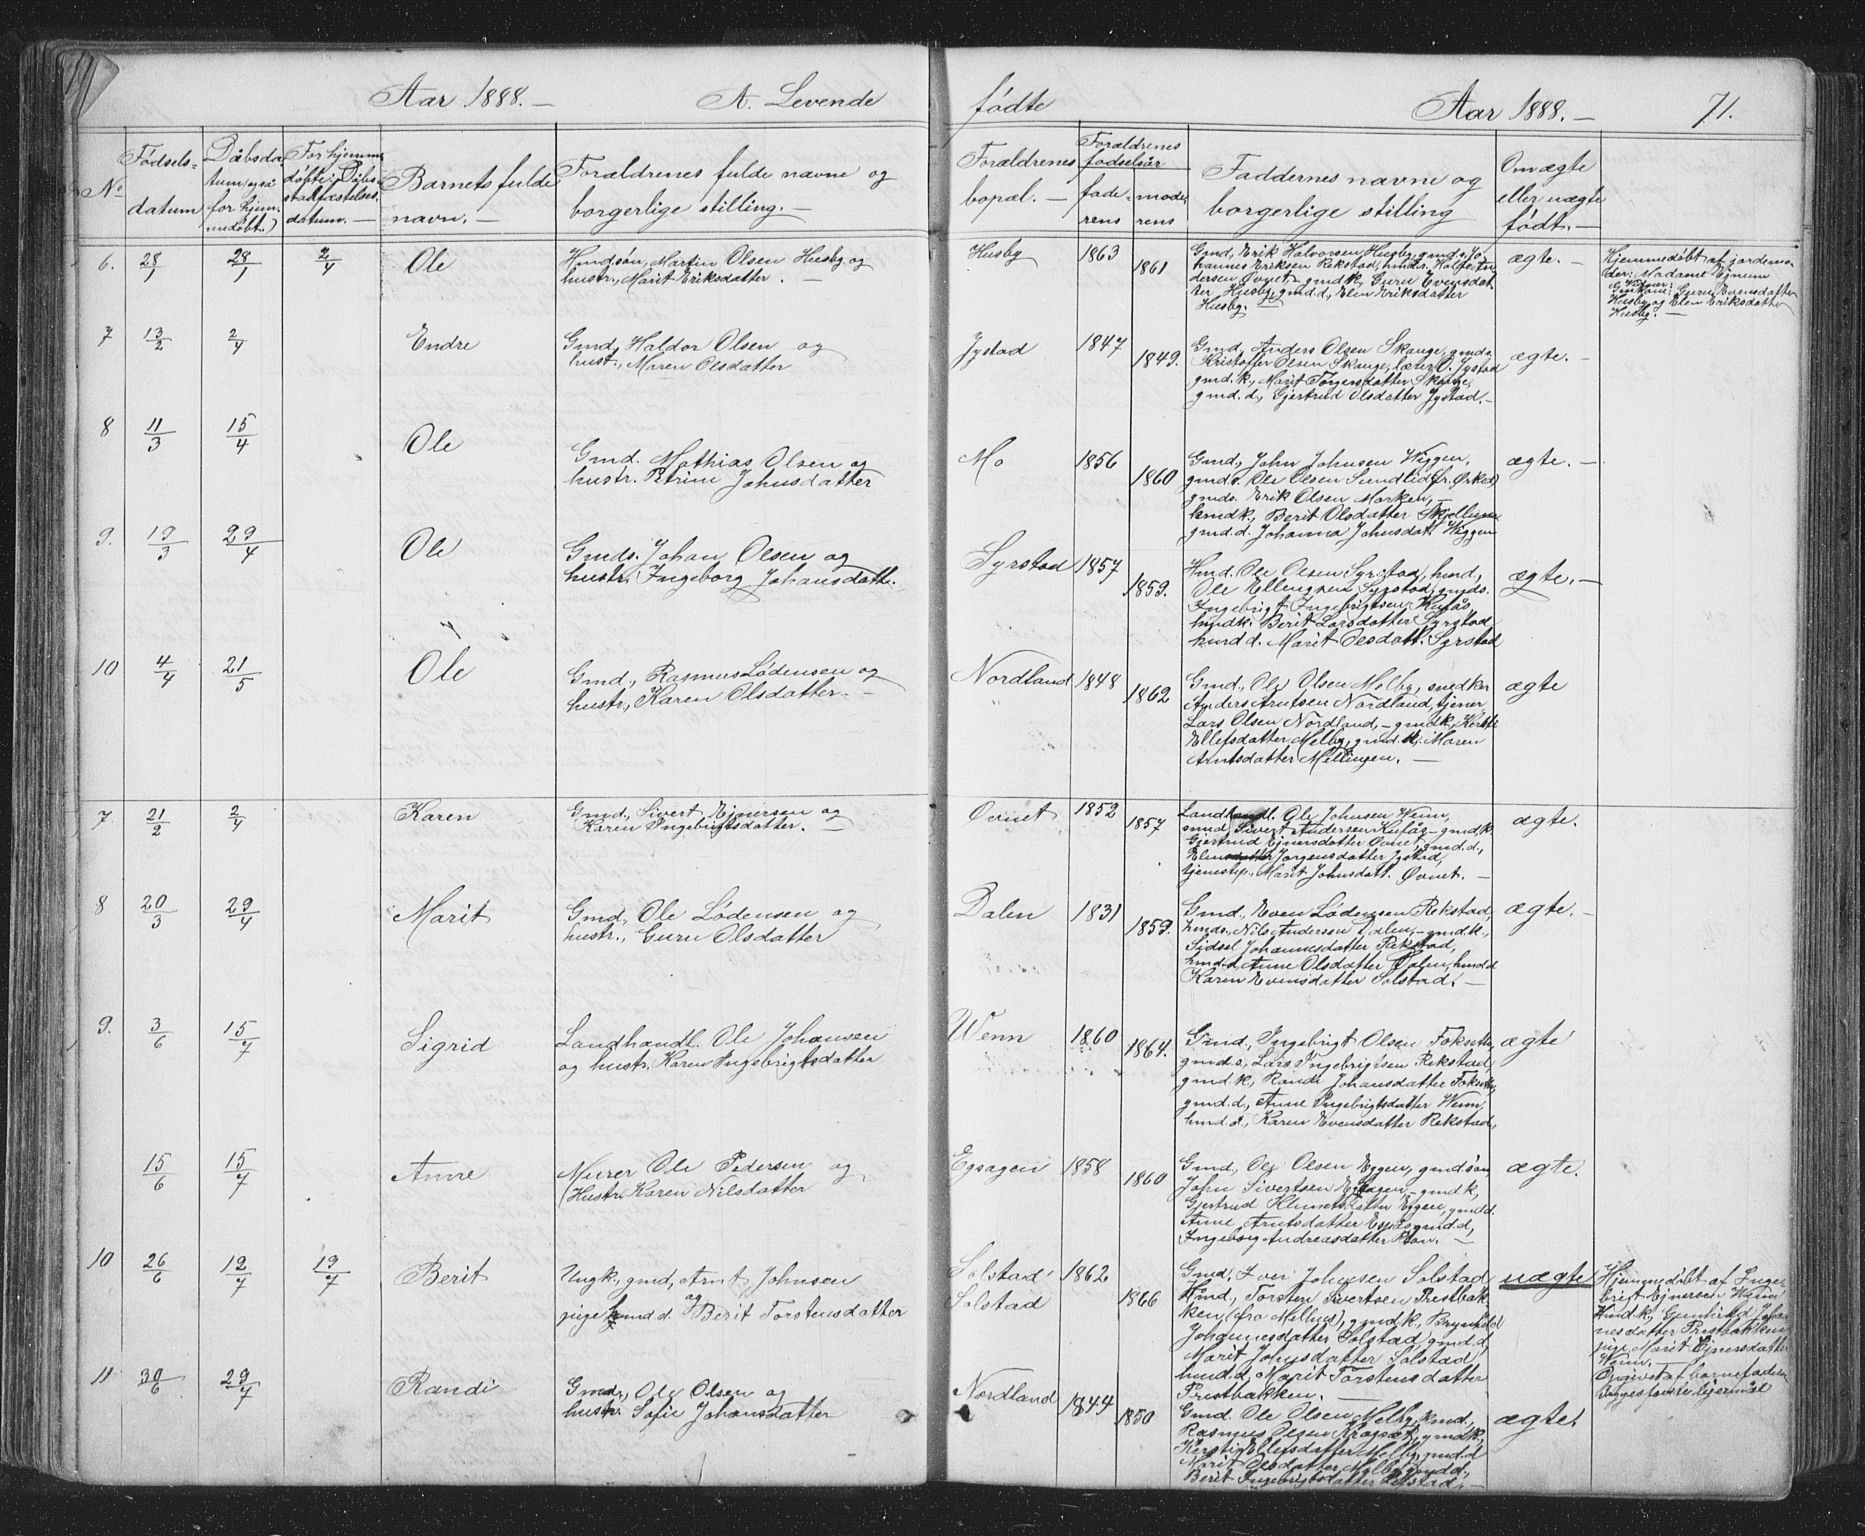 Aar 1888. — A. Levende fødte Aar 1888. — 71.
No
Fødsels-
datum
Dåbsda-
tum også
for hjem-
medøbt.)
For hjemme-
døbte: Dåbs-
stadfæstelses-
datum. —
Barnets fulde
navn. —
Forældrenes fulde navne og
borgerlige stilling. —
Forældrenes
bopæl. —
Forældrenes
fødselsår
fade-
rens
mode-
rens
Faddernes navne og
borgerlige stilling
Om ægte
eller uægte
født. —
6. 28/1 28/1 2/4 Ole
Hmdsøn, Martin Olsen Husby og
hustr., Marit Eriksdatter. —
Husby 1863 1861
Gmd, Erik Halvorsen Husby, gmds, Jo-
hannes Eriksen Rekstad, hmdr. An-
dersen Øvnet, - gmdk, Guru Evensdat-
ter Husby, gmd.d, Elen Eriksdatter
Husby. —
ægte. —
Hjemmedøbt af jordemo-
der: Madame Ejnum
Guru Evensdatter
Husby og Elen Eriksdatter
Husby. —
7 13/2 2/4 Endre
Gmd, Haldor Olsen og
hust., Maren Olsdatter
Jystad 1847 1849.
Gmd, Anders Olsen Skauge, gmds.
Kristoffer Olsen Skauge, lærer O. Jystad
gmd.k., Marit Torgersdatter Skauge,
gmd.d., Gjertrud Olsdatter Jystad. —
ægte. —
8 11/3 15/4 Ole
Gmd. Mathias Olsen og
hustr. Petrine Johnsdatter
Mo 1856 1860
Gmd, John Johnsen Wiggen,
gmds. Ole Olsen Sundli (fr. Orked)
gmds. Erik Olsen Marken, —
hmdk., Berit Olsdatter
gmd.d. Johanna Johnsdatt. Wiggen
ægte. —
9. 19/3 29/4 Ole
Gmds. Johan Olsen og
hustr. Ingeborg Johansdatt.
Syrstad 1857 1859.
Hmd. Ole Olsen Syrstad, hmd,
Ole Ellingsen Syrstad, gmds.
Ingebrigt Ingebrigtsen Kufås,
hmdk. Berit Larsdatter Syrstad
hmd d. Marit Olsdatt. Syrstad
ægte. —
10 4/4 21/5 Ole
Gmd., Rasmus Lødensen og
hustr., Karen Olsdatter. —
Nordland 1848 1862
Gmd., Ole Olsen Melby, snedker
Anders Arntsen Nordland, tjener
Lars Olsen Nordland, - gmdk, Kersti
Ellefsdatter Melby, gmd.k. Maren
Arntsdatter Mellingen. —
ægte
7 21/2 2/4 Karen
Gmd., Sivert Ejnersen og
Karen Ingebrigtsdatter. —
Øvnet 1852 1857
Landhandl. Ole Johnsen Wenn,
Sivert Andersen Kufås - gmd.k.
Gjertrud Ejnersdatter Øvnet, gmd.d.,
Jørgensdatter Jystad,
tjenestep., Marit Johnsdatt. Øvnet. —
ægte.
8 20/3 29/4 Marit
Gmd., Ole Lødensen og
hustr., Guru Olsdatter
Dalen 1831 1859.
Gmd., Even Lødensen Rekstad,
hmds., Nils Andersen Dalen, - gmdk.,
Sidsel Johannesdatter Rekstad,
hmd.d. Anne Olsdatter Dalen, hmd.d
Karen Evensdatter Solstad. —
ægte. —
9. 3/6 15/7 Sigrid
Landhandl. Ole Johansen
og hustr. Karen Ingebrigtsdatter
Wenn 1860 1864.
Gmd, Ingebrigt Olsen
gmds, Lars Ingebrigtsen Rekstad
gmd.k, Randi Johansdatter
gmd.d., Anne Ingebrigtsdatter Wenn,
hmd d., Karen Evensdatter Rekstad,
ægte
15/6 15/7 Anne
Murer Ole Pedersen og
Hustr. Karen Nilsdatter
Egsagen 1858 1860
Gmd, Ole Olsen Eggen, gmdsøn,
John Sivertsen Egsagen, - gmdk,
Gjertrud Klemetsdatter Eggen, gmd.d.
Anne Arntsdatter gmd.d,
Ingeborg Andreasdatter —
ægte.
10 26/6 19/7 19/7 Berit
Ungk., gmd, Arnt Johnsen
og
pige hmd d. Berit Torstensdatter
Solstad 1862
Solstad 1866
Gmd, Iver Johnsen Solstad
Hmd, Torsten Sivertsen Prestbak-
ken (fra Melhus), gmdk, Brynhild
Johannesdatter Solstad, gmd.d,
Marit Johnsdatter Solstad,
hmd.d, Marit Torstensdatter
Prestbakken. —
uægte
Hjemmedøbt af Inge-
brigt Ejnersen Wenn
Hmd.k, Gunhild Johan-
nesdatter Prestbakken
pige Marit Ejnersdatter
Wenn. —
Opgivet af barnefaderen
lejermål
11 30/6 29/7 Randi
Gmd, Ole Olsen og
hustr. Sofie Johansdatter
Nordland 1844 1850
Gmd. Ole Olsen Melby, hmd.,
Rasmus Olsen gmdk,
Kersti Ellefsdatter Melby, gmd.d
Marit Olsdatter Melby, gmd.d.,
Berit Ingebrigtsdatter —
ægte.